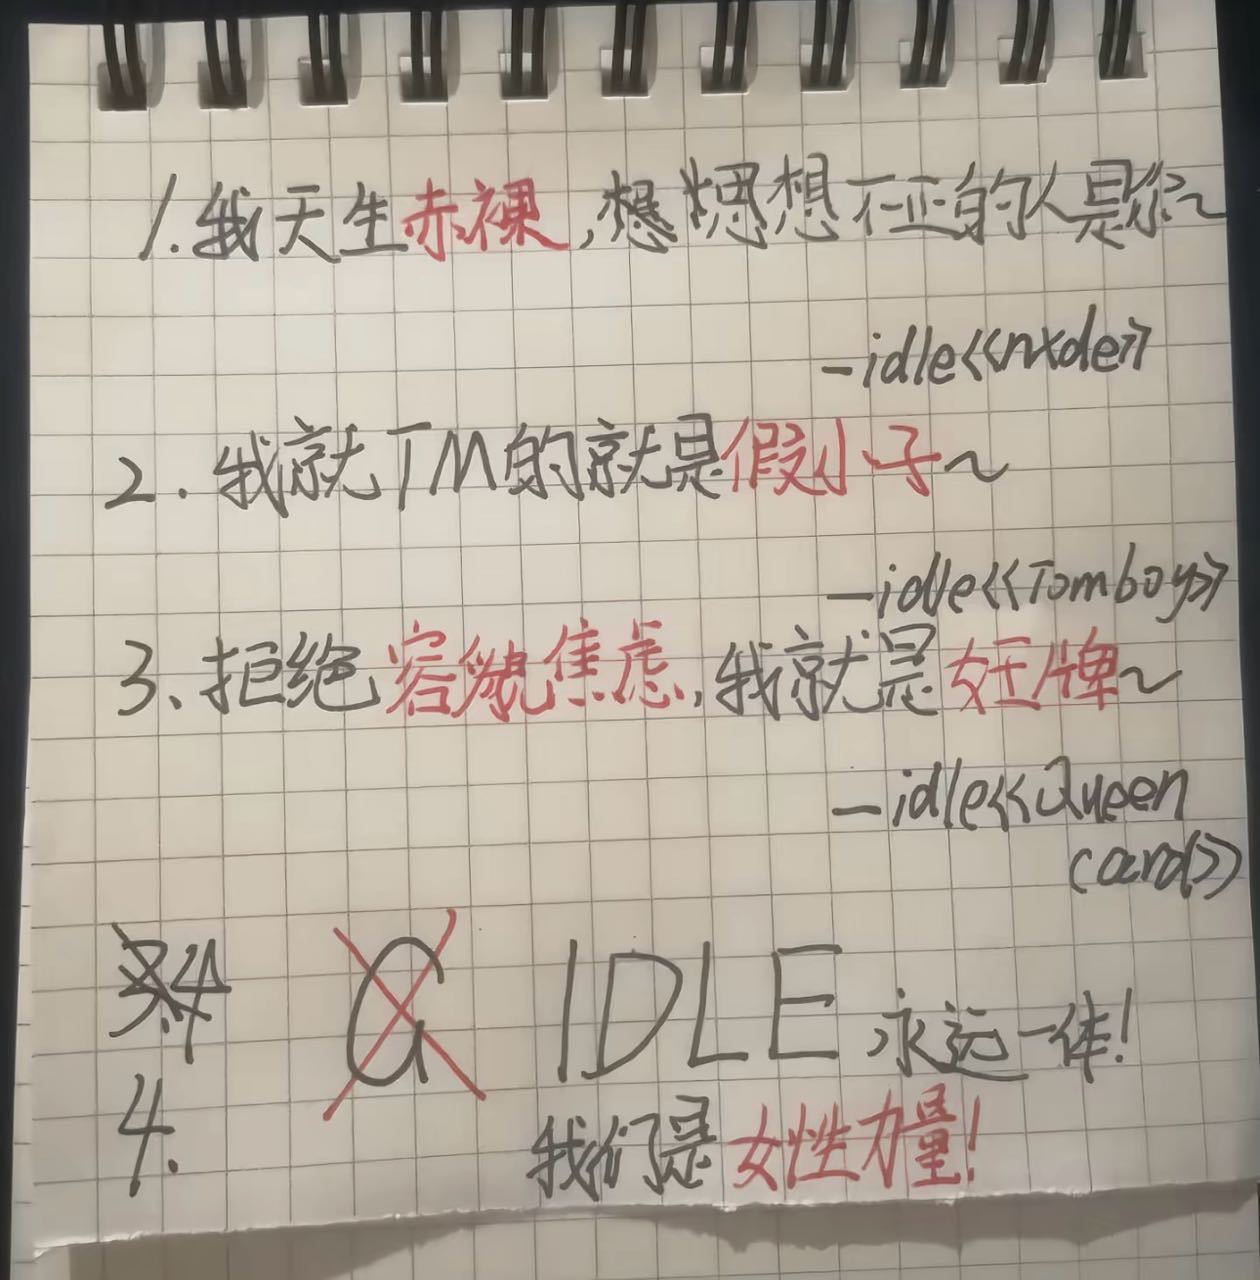 1.我天生赤裸,想思想不正的人是你~
-idle<<nxde>>
2.我就TM的就是假小子~
-idle<<Tomboy>>
3、拒绝容貌焦虑,我就是女王牌~
-idle<<Queen
card>>
3.4
G IDLE 永远一体!
4.
我们是女性力量!